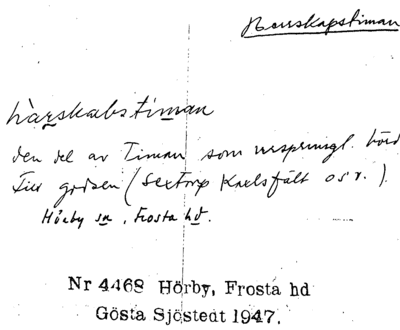 Herrskapstiman
hàrskabstiman
den del av Timan som ursprungl. hörd
till godsen (Sextorp Karlsfält osv.).
Hörby sn, Frosta hd.
Nr 4468 Hörby, Frosta hd
Gösta Sjöstedt 1947.